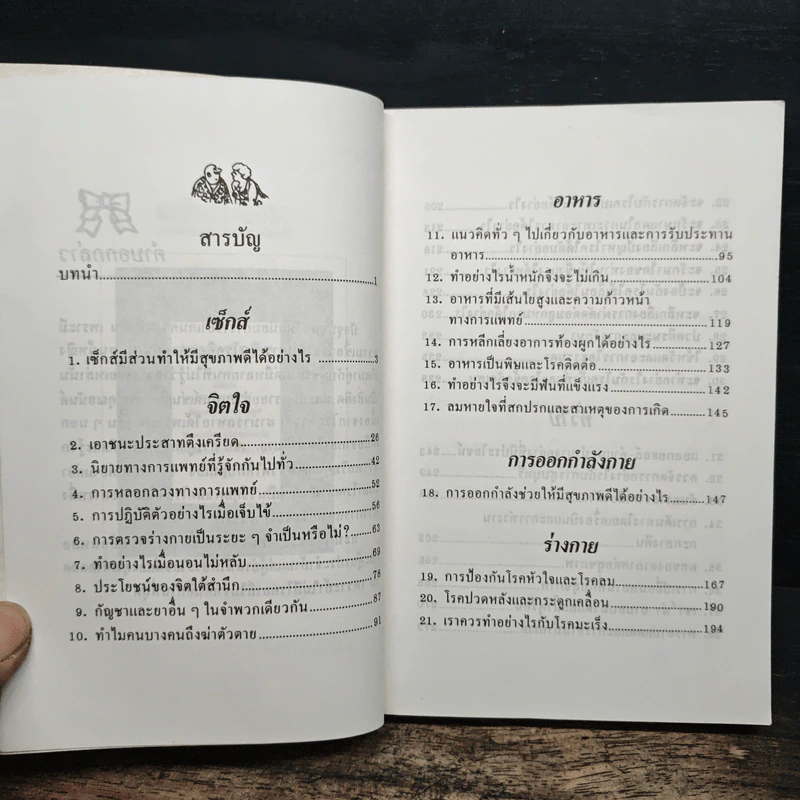 สารบัญ
บทนำ.....1
เซ็กส์
1. เซ็กส์มีส่วนทำให้มีสุขภาพดีได้อย่างไร.....3
จิตใจ
2. เอาชนะประสาทตึงเครียด.....26
3. นิยายทางการแพทย์ที่รู้จักกันไปทั่ว.....42
4. การหลอกลวงทางการแพทย์.....52
5. การปฏิบัติตัวอย่างไรเมื่อเจ็บไข้.....56
6. การตรวจร่างกายเป็นระยะ ๆ จำเป็นหรือไม่?.....63
7. ทำอย่างไรเมื่อนอนไม่หลับ.....69
8. ประโยชน์ของจิตใต้สำนึก.....78
9. กัญชาและยาอื่น ๆ ในจำพวกเดียวกัน.....87
10. ทำไมคนบางคนถึงฆ่าตัวตาย.....91
อาหาร
11. แนวคิดทั่ว ๆ ไปเกี่ยวกับอาหารและการรับประทาน
อาหาร.....95
12. ทำอย่างไรน้ำหนักจึงจะไม่เกิน.....104
13. อาหารที่มีเส้นใยสูงและความก้าวหน้า
ทางการแพทย์.....119
14. การหลีกเลี่ยงอาการท้องผูกได้อย่างไร.....127
15. อาหารเป็นพิษและโรคติดต่อ.....133
16. ทำอย่างไรจึงจะมีฟันที่แข็งแรง.....142
17. ลมหายใจที่สกปรกและสาเหตุของการเกิด.....145
การออกกำลังกาย
18. การออกกำลังช่วยให้มีสุขภาพดีได้อย่างไร.....147
ร่างกาย
19. การป้องกันโรคหัวใจและโรคลม.....167
20. โรคปวดหลังและกระดูกเคลื่อน.....190
21. เราควรทำอย่างไรกับโรคมะเร็ง.....194